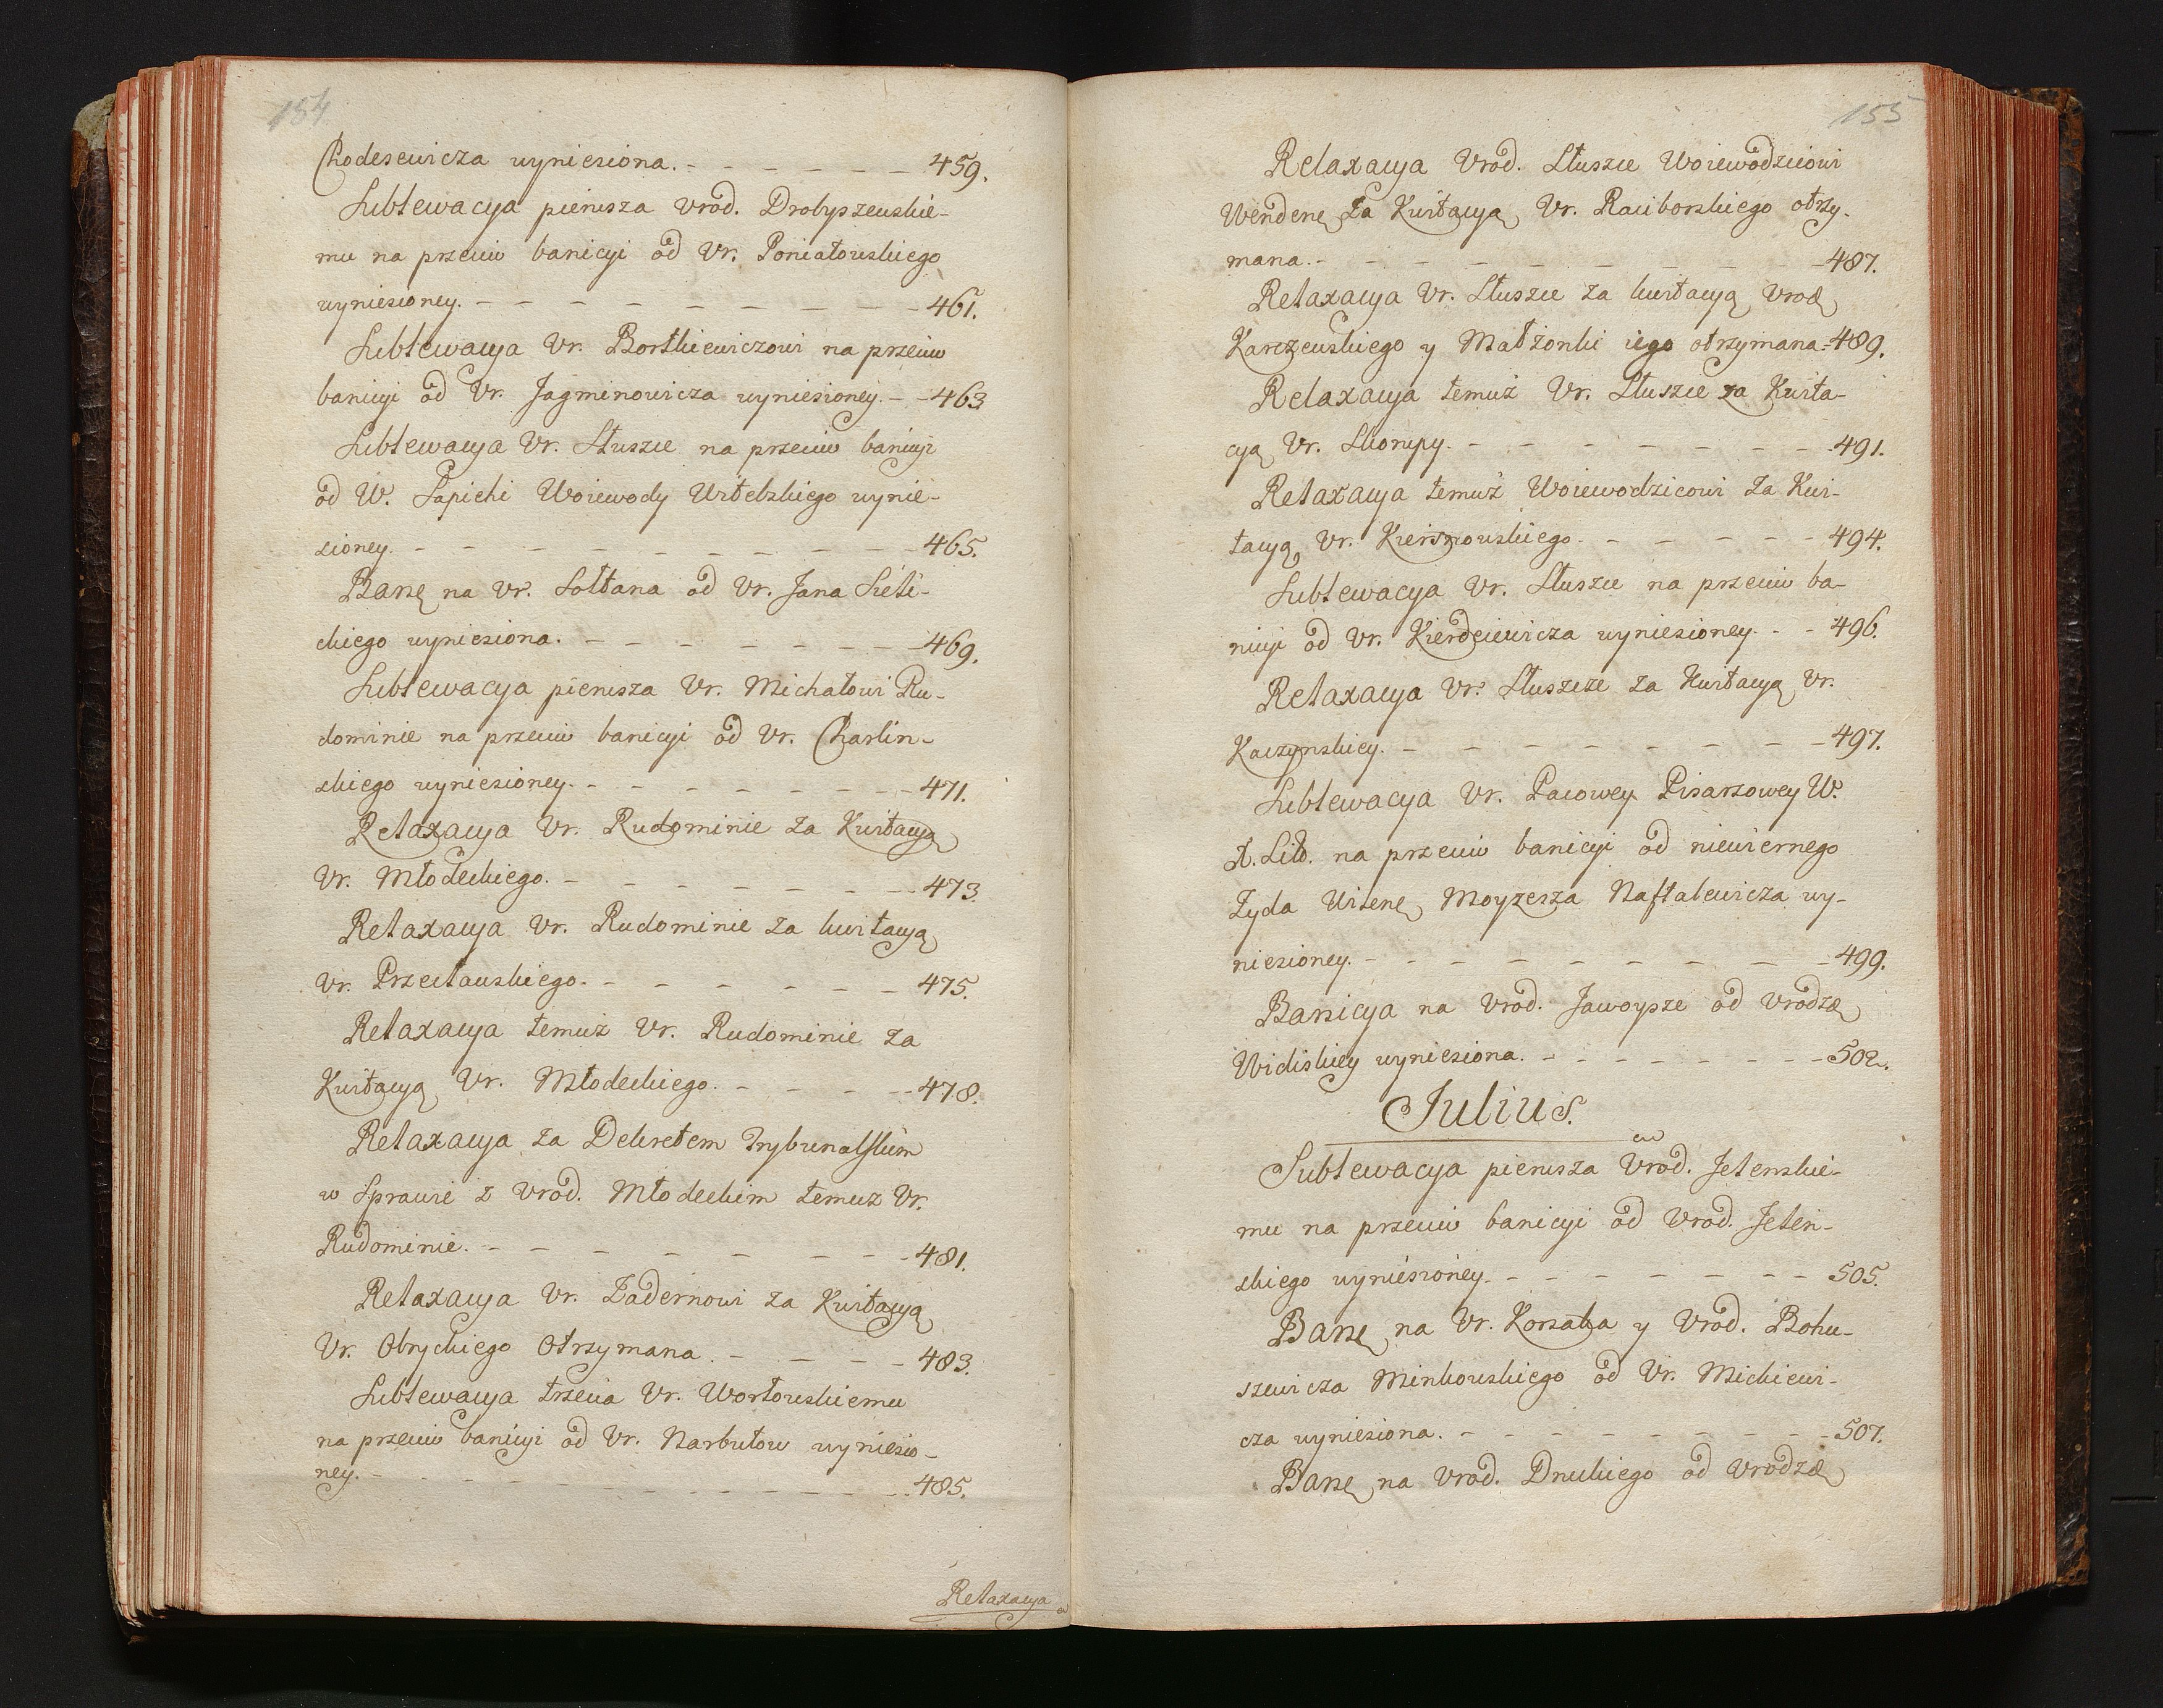 154
Chodesewicza wyniesiona. - - - - - - 459.
Sublewacya pierwsza Vrod. Drobyszewskie-
mu na przeciw banicyi od Vr. Poniatowskiego
wyniesioney. - - - - - - - - 461.
Sublewacya Vr. Bortkiewiczowi na przeciw
banicyi od Vr. Jagminowicza wyniesioney. - - 463
Sublewacya Vr. Słuszce na przeciw banicyi
od W. Sapiehi Woiewody Witebskiego wynie-
sioney. - - - - - - - - - 465.
Banę na Vr. Sołtana od Vr. Jana Sieli-
ckiego wyniesiona. - - - - - - - 469.
Sublewacya pierwsza Vr. Michałowi Ru-
dominie na przeciw banicyi od Vr. Charlin-
skiego wyniesioney. - - - - - - - 471.
Relaxacya Vr. Rudominie za Kwitacyą
Vr. Młodeckiego. - - - - - - - 473.
Relaxacya Vr. Rudominie za kwitacyą
Vr. Przecławskiego. - - - - - - 475.
Relaxacya temuż Vr. Rudominie za
Kwitacyą Vr. Młodeckiego. - - - - 478.
Relaxacya za Dekretem Trybunalskim
w Sprawie z Vrod. Młodeckim temuz Vr.
Rudominie. - - - - - - - - 481.
Relaxacya Vr. Zadernowi za Kwitacyą
Vr. Obryckiego Otrzymana. - - - - 483.
Sublewacya trzecia Vr. Wortowskiemu
na przeciw banicyi od Vr. Narbutow wyniesio-
ney. - - - - - - - - - - 485.
Relaxacya
155
Relaxacya Vrod. Słuszce Woiewodzicowi
Wendenę za Kwitacyą Vr. Raciborskiego otrzy-
mana. - - - - - - - - - 487.
Relaxacya Vr. Słuszce za kwitacyą Vrod
Karczewskiego y Małżonki iego otrzymana - 489.
Relaxacya temuż Vr. Słuszce za Kwita-
cyą Vr. Skorupy. - - - - - - - 491.
Relaxacya temuż Woiewodzicowi za Kwi-
tacyą Vr. Kiersnowskiego. - - - - - 494.
Sublewacya Vr. Słuszce na przeciw ba-
nicyi od Vr. Kierdeiewicza wyniesioney. - - 496.
Relaxacya Vr. Słuszcze za Kwitacyą Vr.
Kaczynskiey. - - - - - - - - 497.
Sublewacya Vr. Pacowey Pisarzowey W.
X. Lit. na przeciw banicyi od niewiernego
Zyda Wilenę Moyzesza Naftalewicza wy-
niesioney. - - - - - - - - 499.
Banicya na Vrod. Jawoysze od Vrodzę
Widiskiey wyniesiona. - - - - - - 502.
Julius.
Sublewacya pierwsza Vrod. Jelenskie-
mu na przeciw banicyi od Vrod. Jelen-
skiego wyniesioney. - - - - - - 505.
Banę na Vr. Korsaka y Vrod. Bohu-
szewicza Minkowskiego od Vr. Mickiewi-
cza wyniesiona. - - - - - - - 507.
Banę na Vrod. Druckiego od Vrodzę